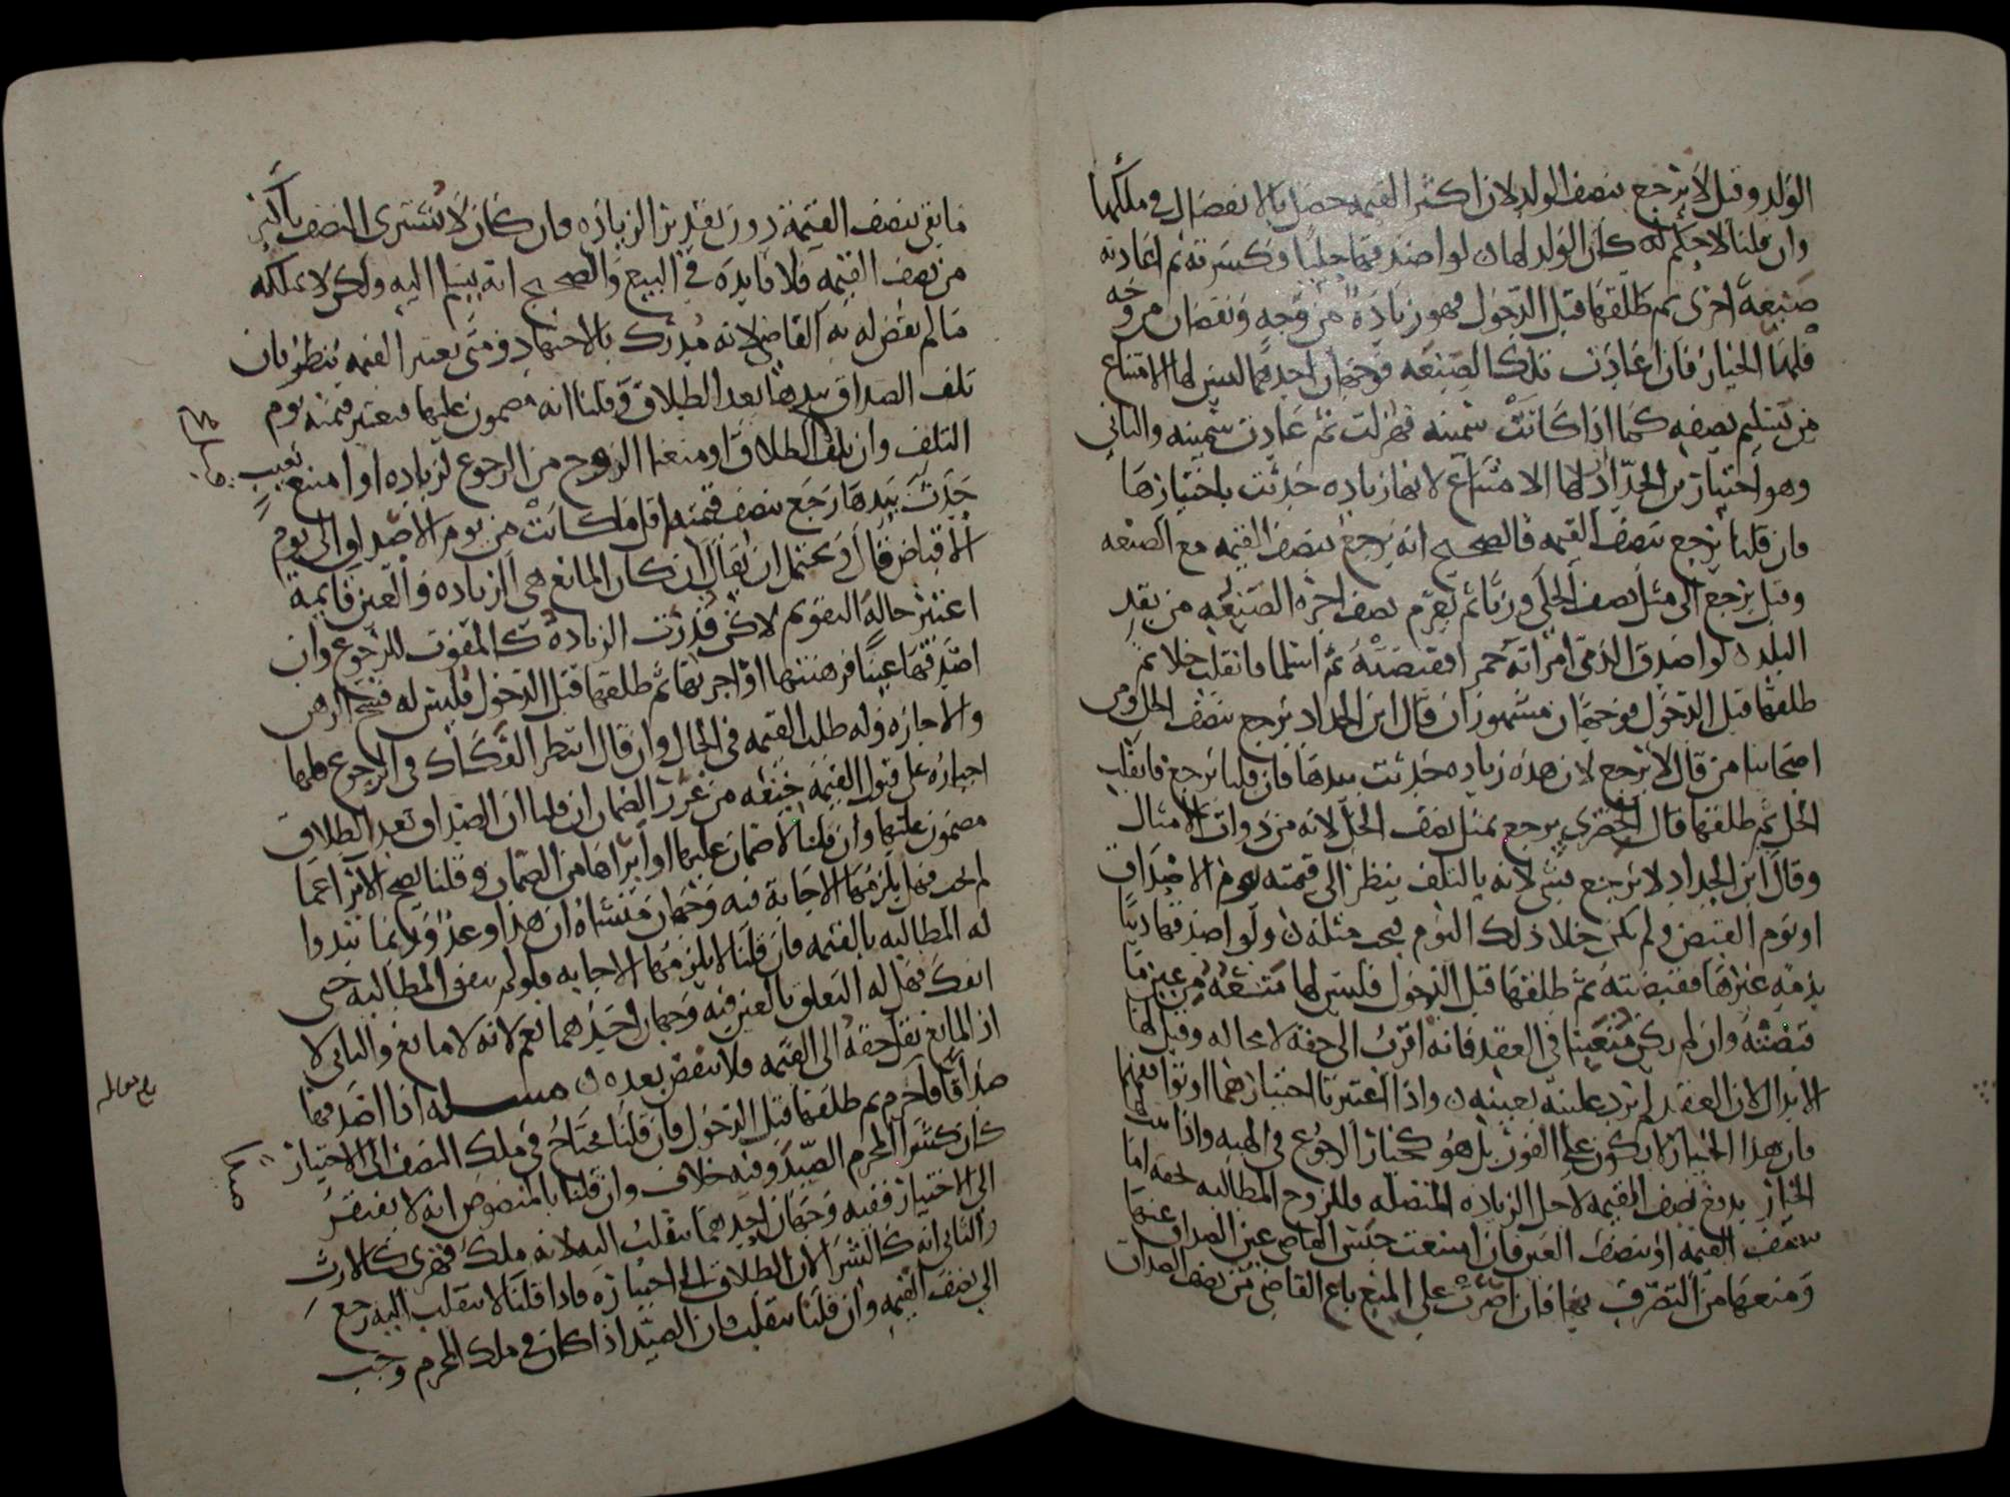 الولد وقيل لا يرجع بنصف الولد لان اكثر القيمة حصل بالانفصال في ملكها
وان قلنا لا حكم له كان الولد لها ن لو اصدقها حليا وكسرته ثم اعادته
صنعة اخرى ثم طلقها قبل الدخول فهو زيادة من وجه ونقصان من وجه
فلهما الخيار فان اعادت تلك الصنعه فوجهان احدهما ليس لها الامتناع
من تسليم نصفه كما اذا كانت سمينه فهزلت ثم عادت سمينه والثاني
وهو اختيار بن الحداد لها الامتناع لانها زياده حدثت باختيارها
فان قلنا يرجع بنصف القيمه فالصحيح انه يرجع بنصف القيمه مع الصنعه
وقيل يرجع الى مثل نصف الحلي وزنا ثم يغرم نصف اجره الصنعه من نقد
البلد ن لو اصدق الذمي امراته خمرا فقبضته ثم اسلما فانقلب خلا ثم
طلقها قبل الدخول فوجهان مشهوران قال ابن الحداد يرجع بنصف الخل ومن
اصحابنا من قال لا يرجع لان هذه زياده حدثت بيدها فان قلنا يرجع فاتلف
الخل ثم طلقها قال الخضري يرجع بمثل نصف الخل لانه من ذوات الامثال
وقال ابن الحداد لا يرجع بشي لانه بالتلف ينظر الى قيمته يوم الاصداق
او يوم القبض ولم يكن خلا ذلك اليوم فيجب مثله ن ولو اصدقها دينا
بذمة غيرها فقبضته ثم طلقها قبل الدخول فليس لها منعه من عين ما
قبضته وان لم يكن متعينا في العقد فانه اقرب الى حقه لا محاله وقيل لها
الابدال لان العقد لم يرد عليه بعينه ن واذا اعتبرنا اختيارهما او توافقهما
فان هذا الخيار لا يكون على الفور بل هو كخيار الرجوع في الهبه واذا
الخيار بدفع نصف القيمه لاجل الزياده المتصله وللزوج المطالبه بحقه اما
بنصف القيمه او بنصف العين فان امتنعت حبس القاضي عين الصداق عنها
ومنعها من التصرف فيها فان اصرت على المنع باع القاضي من نصف الصداق
ما يفي بنصف القيمة دون تقدير الزياده فان كان لا يشترى النصف باكثر
من نصف القيمه فلا فايده في البيع والصحيح انه يسلم اليه ولكن لا يملكه
ما لم يقض له به القاضي لانه مدرك بالاجتهاد ومتى يعتبر القيمه ينظر فان
تلف الصداق بيدها بعد الطلاق وقلنا انه مضمون عليها فيعتبر قيمته يوم
التلف وان تلف الطلاق او منعنا الزوج من الرجوع لزياده او امتنع بعيب
حدث بيدها رجع بنصف قيمته اقل ما كانت من يوم الاصداق الى يوم
الاقباض قال ويحتمل ان يقال ان كان المانع هي الزياده والعين قايمة
اعتبر حالة التقويم لا كن قدرت الزيادة كالمفوت للرجوع وان
اصدقها عينا فرهنتها او اجرتها ثم طلقها قبل الدخول فليس له فسخ الرهن
والاجاره وله طلب القيمه في الحال وان قال انتظر الفكاك في الرجوع فلها
اجباره على قبول القيمه خيفه من غرر الضمان ان قلنا ان الصداق بعد الطلاق
مضمون عليها وان قلنا لا ضمان عليها او ابراها من الضمان وقلنا يصح الابرا عما
لم يجب فهل يلزمها الاجابة فيه وجهان منشاه ان هذا وعد وربما تبدوا
له المطالبه بالقيمه فان قلنا لا يلزمها الاجابه فلو لم يتفق المطالبه حتى
انفك فهل له التعلق بالعين فيه وجهان احدهما نعم لانه لا مانع والثاني لا
اذ المانع نقل حقه الى القيمه فلا ينقض بعده ن مسله اذا اصدقها
صداقا فاحرم ثم طلقها قبل الدخول فان قلنا يحتاج في ملك النصف الى الاختيار
كان كشرا المحرم الصيد وفيه خلاف وان قلنا بالمنصوص انه لا يفتقر
الى الاختيار ففيه وجهان احدهما ينقلب اليه لانه ملك قهري كالارث
والثاني انه كالشرا لان الطلاق الى اختياره فاذا قلنا لا ينقلب اليه رجع
الى نصف القيمه وان قلنا ينقلب فان الصيد اذا كان في ملك المحرم وجب